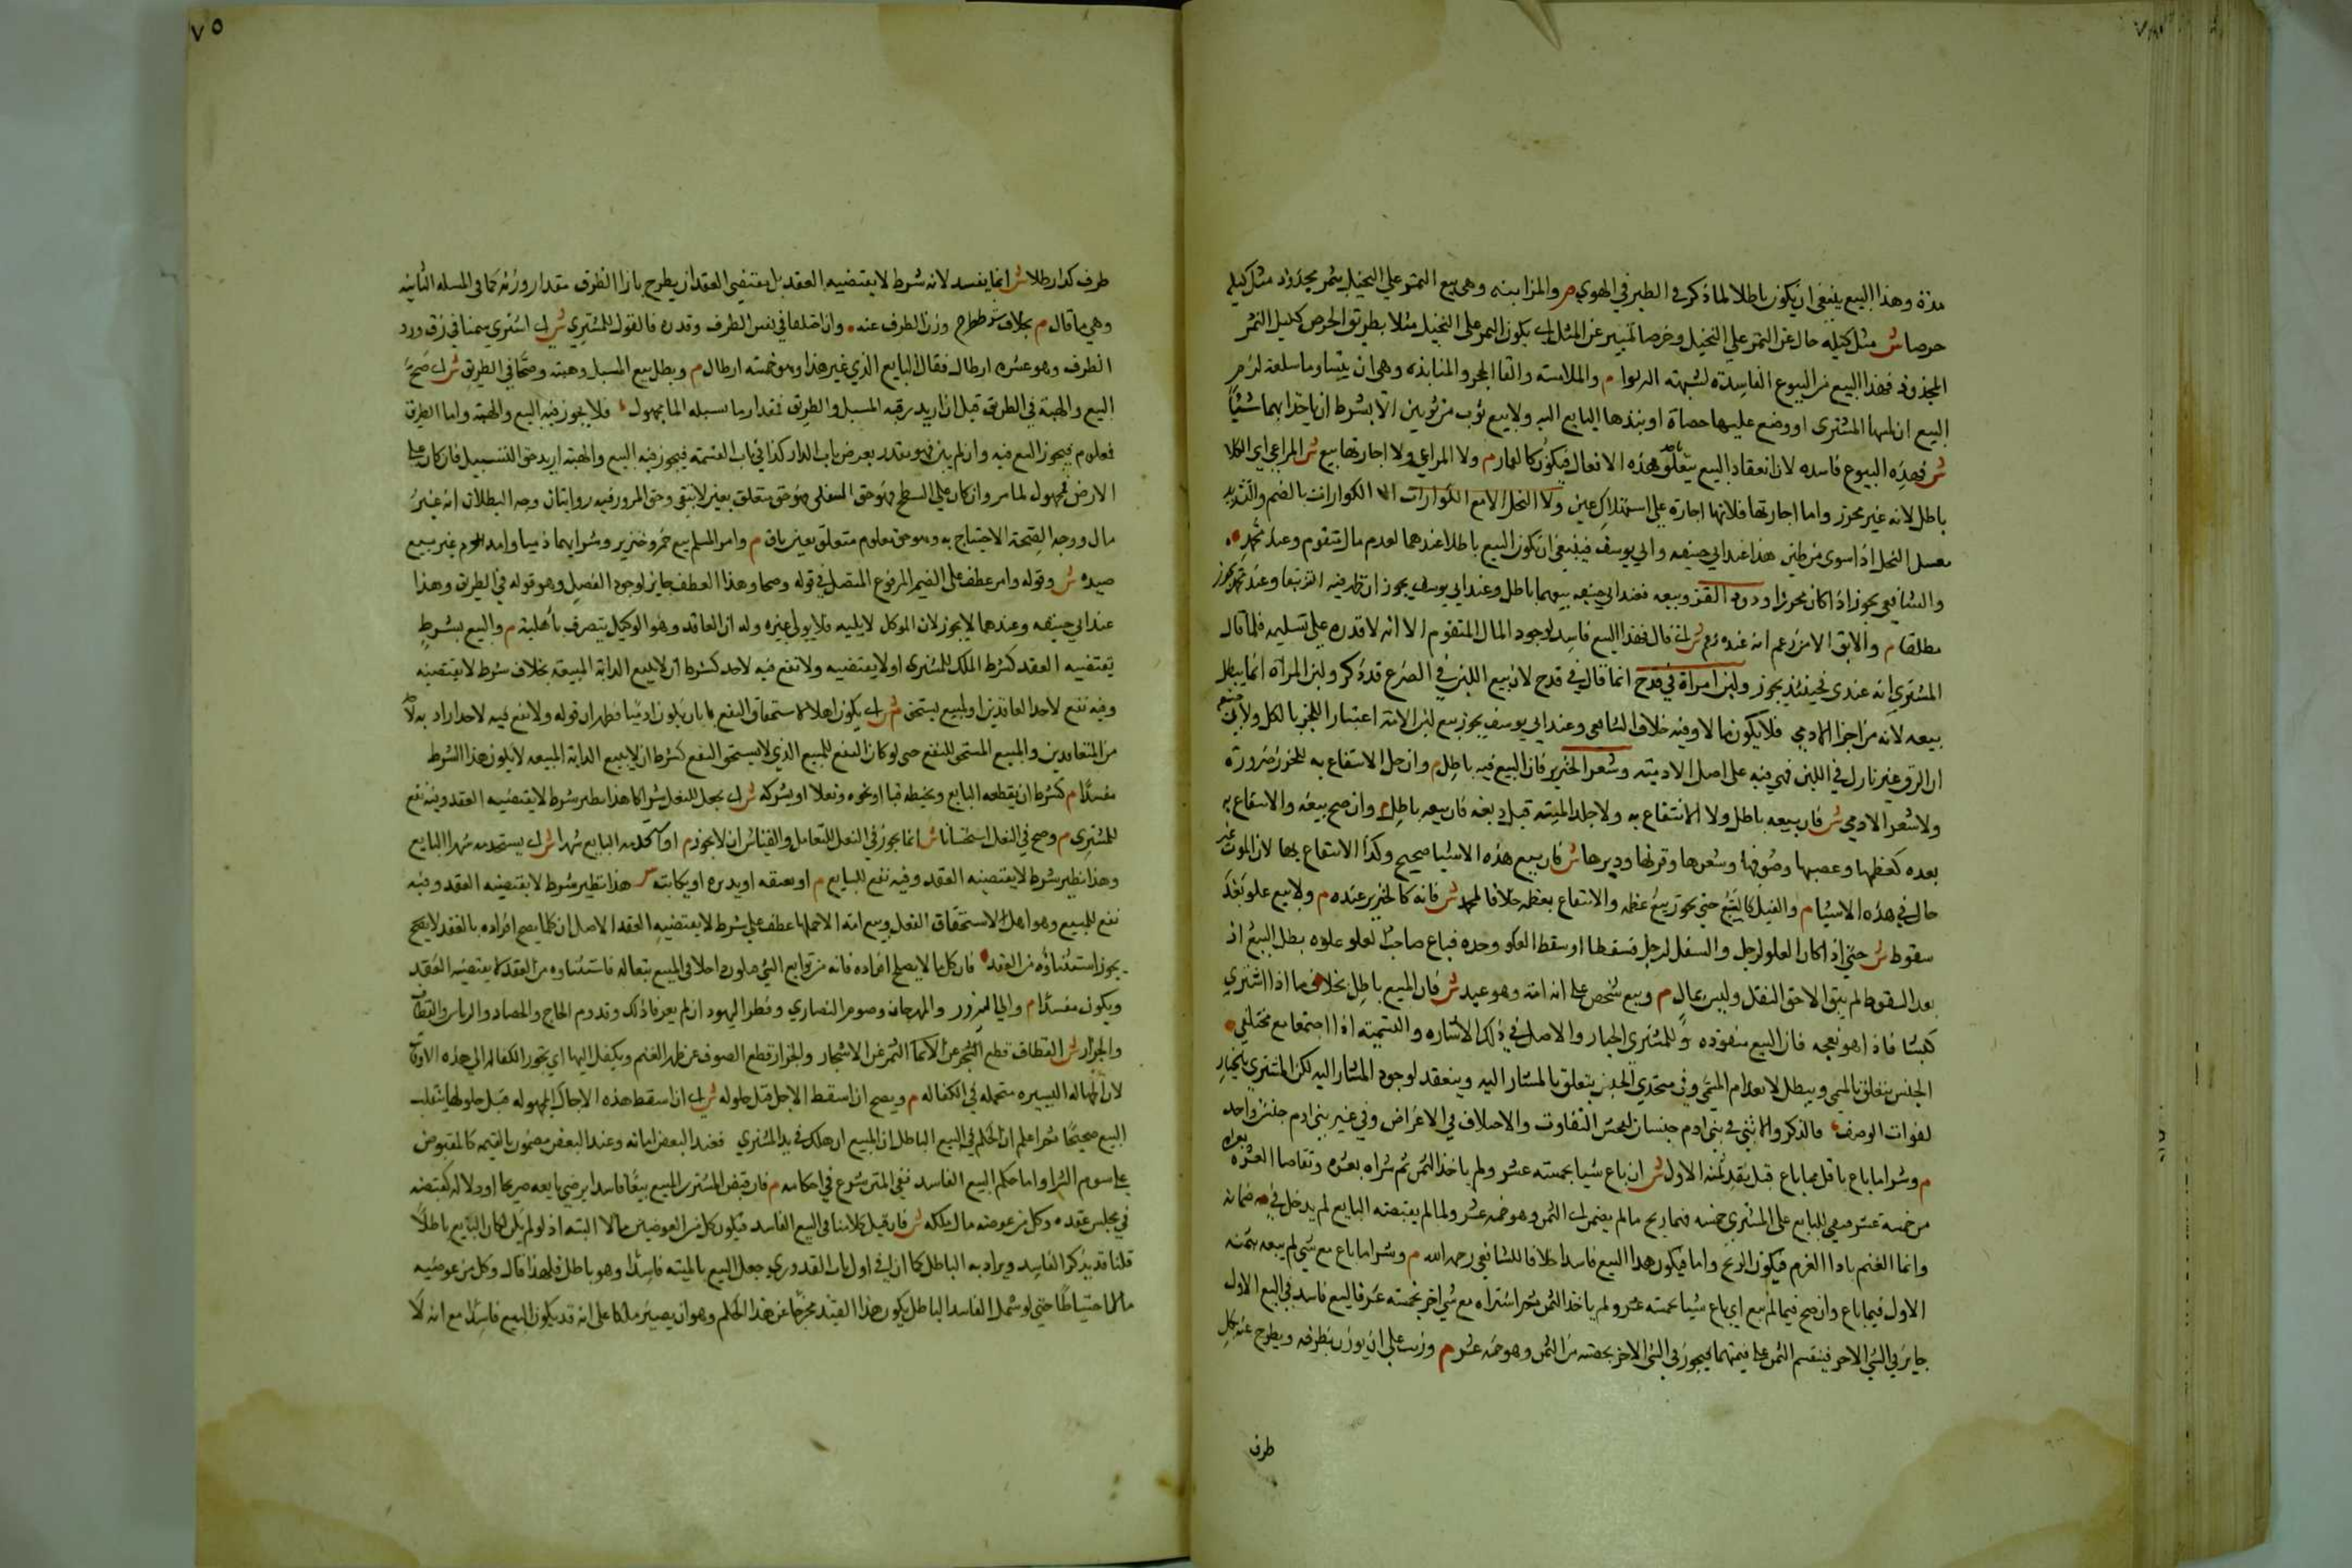 مرة وهذا البيع ينبغي ان يكون باطلا لما ذكر في الطير في الهوي م والمزابنه وهي بيع الثمر علي النخيل بتمر مجذوذ مثل كيله
خرصا ش مثل كيله حال عن الثمر علي النخيل وخرصا تمييز عن المثل اي يكون الثمر علي النخيل مثلا بطريق الخرص لكيل التمر
المجذوذ فهذا البيع من البيوع الفاسدة لشبهة الربوا م والملامسه والقا الحجر والمنابذه وهي ان يتساوما سلعة لزم
البيع ان لمسها المشتري او وضع عليها حصاة او نبذها البايع اليه ولا بيع ثوب من ثوبين الا بشرط ان ياخذ ايهما شيئا
ش فهذه البيوع فاسده لان انعقاد البيع يتعلق باحد هذه الافعال فيكون كالقمار م ولا المراعي ولا اجارتها بيع ش المراعي اي الكلا
باطل لانه غير محرز واما اجارتها فلانها اجارة علي استهلاك عين ولا النحل الا مع الكوارات الكوارات بالضم والتشديد
معسل النحل اذا سوي من طين هذا عند ابي حنيفه وابي يوسف فينبغي ان يكون البيع باطلا عندهما لعدم مال متقوم وعند محمد
والشافعي يجوز اذا كان محرزا ودود القز وبيعه فعند ابي حنيفه بيعهما باطل وعند ابي يوسف يجوز ان ظهر فيه القز تبعا وعند محمد يجوز
مطلقا م والابق الا من زعم انه عنده ش فهذا البيع فاسد لوجود المال المتقوم الا انه لا قدره علي تسليمه فلما قال
المشتري انه عندي فحينئذ يجوز ولبن امراة في قدح انما قال في قدح لان بيع اللبن في الضرع قد ذكر ولبن المراة انما يبطل
بيعه لانه من اجزا الادمي فلا يكون مالا وفيه خلاف الشافعي وعند ابي يوسف يجوز بيع لبن الامة اعتبارا للجز بالكل ولابي حنيفه
ان الرق غير نازل في اللبن فهي فيه على اصل الادميته وشعر الخنزير فان البيع فيه باطل م وان حل الانتفاع به للخرز ضرورة
ولا شعر الادمي ش فان بيعه باطل ولا الانتفاع به ولا جلد الميته قبل دبغه فان بيعه باطل م وان صح بيعه والانتفاع به
بعده كعظمها وعصبها وصوفها وشعرها وقرنها ووبرها ش فان بيع هذه الاشيا صحيح وكذا الانتفاع بها لان الموت غير
حال في هذه الاشيا م والفيل كالسبع حتي يجوز بيع عظمه والانتفاع بعظمه خلافا لمحمد ش فانه كالخنزير عنده م ولا بيع علو بعد
سقوطه ش حتي اذا كان العلو لرجل والسفل لرجل فسقطا او سقط العلو وحده فباع صاحب العلو علوه بطل البيع اذ
بعد السقوط لم يبق الا حق النقل وليس بمال م وبيع شخص على انه امة وهو عبد ش فان المبيع باطل بخلاف ما اذا اشتري
كبشا فاذا هو نعجه فان البيع منعقد وللمشتري الخيار والاصل في ذلك ان الاشاره والتسميته اذا اجتمعا مع مختلفي
الجنس يتعلق بالمسمي ويبطل لانعدام المسمي وفي متحدي الجنس يتعلق بالمشار اليه وينعقد لوجود المشار اليه لكن المشتري بالخيار
لفوات الوصف فالذكر والانثي في بني ادم جنسان لفحش التفاوت والاختلاف في الاغراض وفي غير بني ادم جنس واحد
م وشرا ما باع باقل مما باع قبل نقد ثمنه الاول ش ان باع شيا بخمسته عشر ولم ياخذ الثمن ثم شراه بعشره وتقاصا العشره بعشره
من خمسة عشر فبقي للبايع على المشتري خمسه فهذا ربح ما لم يضمن اي الثمن وهو خمسه عشر ولما لم يقبضه البايع لم يدخل في ضمانه
وانما الغنم بازا الغرم فيكون الربح فيكون هذا البيع فاسدا خلافا للشافعي رحمه الله م وشرا ما باع مع شي لم يبعه بثمنه
الاول فيما باع وان صح فيما لم يبع اي باع شيا بخمسته عشر ولم ياخذ الثمن ثم اشتراه مع شي اخر بخمسته عشر فالبيع فاسد في المبيع الاول
جايز في الشي الاخر فينقسم الثمن علي قيمتهما فيجوز في الشي الاخر بحصته من الثمن وهو خمسه عشر م وزيت علي ان يوزن بظرفه ويطرح عنه لكل
طرف
٧٥
ظرف كذا رطلا ش انما يفسد لانه شرط لا يقتضيه العقد بل مقتضي العقد ان يطرح بازا الظرف مقدار وزنه كما في المسله الثانيه
وهي ما قال م بخلاف شرط طرح وزن الظرف عنه وان اختلفا في نفس الظرف وقدره فالقول للمشتري ش اي اشتري سمنا في زق ورد
الظرف وهو عشره ارطال فقال البايع الذي غير هذا وهو خمسته ارطال م وبطل بيع المسيل وهبته وصحا في الطريق ش اي صح
البيع والهبة في الطريق قيل ان اريد رقبة المسيل والطريق فمقدار ما يسيله الما مجهول فلا يجوز فيه البيع والهبة واما الطريق
فعلوم فيجوز البيع فيه وان لم يبين فهو مقدر بعرض باب الدار كذا في باب القسمته فيجوز فيه البيع والهبته اريد حق التسييل فان كان علي
الارض فمجهول لما مر وان كان علي السطح فهو حق التعلي فهو حق متعلق بعين لا تبقي وحق المرور فيه روايتان وجه البطلان انه غير
مال ووجه الصحة الاحتياج به وهو حق معلوم متعلق بعين باق م وامر المسلم بيع خمر وخنزير وشرايهما ذميا وامر المحرم غيره ببيع
صيده ش وقوله وامر عطف علي الضمير المرفوع المتصل في قوله وصحا وهذا العطف جايز لوجود الفصل وهو قوله في الطريق وهذا
عند ابي حنيفه وعندهما لا يجوز لان الموكل لا يليه فلا يولي غيره وله ان العاقد وهو الوكيل يتصرف باهليته م والبيع بشرط
يقتضيه العقد كشرط الملك للمشتري او لا يقتضيه ولا نفع فيه لاحد كشرط ان لا يبيع الدابة المبيعه بخلاف شرط لا يقتضيه
وفيه نفع لاحد العاقدين او لمبيع يستحق م ش اي يكون اهلا لاستحقاق النفع بان يكون ادميا فظهر ان قوله ولا نفع فيه لاحد اراد به
من المتعاقدين والمبيع المستحق للنفع حتي لو كان النفع للمبيع الذي لا يستحق النفع كشرط ان لا يبيع الدابة المبيعه لا يكون هذا الشرط
مفسدا م كشرط ان يقطعه البايع ويخيطه قبا او نحوه ونعلا او يشركه ش اي يجعل للنعل شراكا هذا نظير شرط لا يقتضيه العقد وفيه نفع
للمشتري م وصح في النعل استحسانا ش انما يجوز في النعل للتعامل والقياس ان لا يجوز م او يستخدمه البايع شهرا ش اي يستخدمه شهرا البايع
وهذا نظير شرط لا يقتضيه العقد وفيه نفع للبايع م او يعتقه او يدبره او يكاتبه ش هذا نظير شرط لا يقتضيه العقد وفيه
نفع للمبيع وهو اهل لاستحقاق النفع وبيع امة الا حملها عطف علي شرط لا يقتضيه العقد الاصل ان كل ما يصح افراده بالعقد لا يصح
يجوز استثناؤه من العقد فان كل ما لا يصلح افراده فانه من توابع الشي فيكون داخلا في المبيع تبعا له فاستثناوه من العقد لا يقتضيه العقد
ويكون مفسدا م والي النيروز والمهرجان وصوم النصاري وفطر اليهود ان لم يعرفا ذلك وقدوم الحاج والحصاد والدياس والقطاف
والجزاز ش القطاف قطع الثمر عن الاشجار والجزاز قطع الصوف عن ظهر الغنم ويكفل اليها اي يجوز الكفاله الي هذه الاوقات
لان الجهاله اليسيره متحمله في الكفاله م ويصح ان اسقط الاجل قبل حلوله ش اي ان اسقط هذه الاجال المجهوله قبل حلولها ينقلب
البيع صحيحا ثم اعلم ان الحكم في البيع الباطل ان المبيع ان هلك في يد المشتري فعند البعض امانه وعند البعض مضمون بالقيمه كالمقبوض
علي سوم الشرا واما حكم البيع الفاسد ففي المتن شرع في احكامه م فان قبض المشتري المبيع بيعا فاسدا برضي بايعه صريحا او دلاله كقبضه
في مجلس عقده وكل من عوضيه مال يملكه ش فان قيل كلامنا في البيع الفاسد فيكون كل من العوضين مالا البته اذ لو لم يكن لكان البيع باطلا
قلنا قد يذكر الفاسد ويراد به الباطل كما ان في اول باب القدوري جعل البيع بالميته فاسدا وهو باطل فلهذا قال وكل من عوضيه
مال احتياطا حتي لو شمل الفاسد الباطل يكون هذا القيد مخرجا عن هذا الحكم وهو ان يصير ملكا على انه قد يكون البيع فاسدا مع انه لا